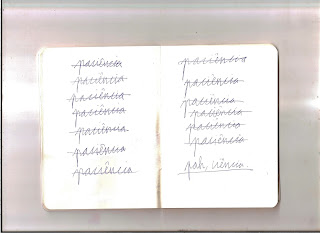 paciência
paciência
paciência
paciência
paciência
paciência
paciência
paciência
paciência
paciência
paciência
paciência
paciência
pah, ciência.